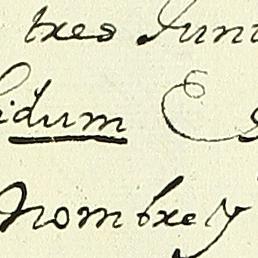 tres Junt
idum Es
Nombre y